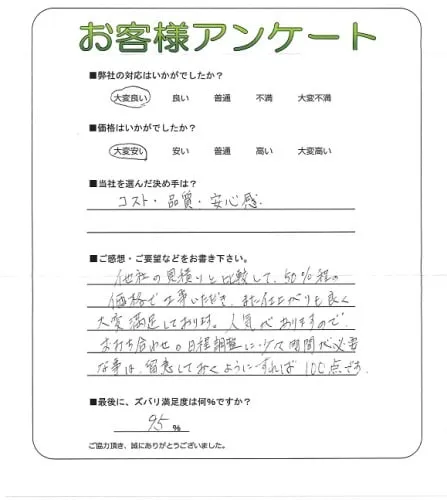 お客様アンケート
■弊社の対応はいかがでしたか？
大変良い 良い 普通 不満 大変不満
■価格はいかがでしたか？
大変安い 安い 普通 高い 大変高い
■当社を選んだ決め手は？
コスト・品質・安心感
■ご感想・ご要望などをお書き下さい。
他社の見積りと比較して、50%程の
価格で工事いただき、また仕上がりも良く
大変満足しております。人気がありますので、
お打ち合わせの日程調整に少々時間が必要
な事は、留意しておくようにすれば100点です。
■最後に、ズバリ満足度は何%ですか？
95 %
ご協力頂き、誠にありがとうございました。